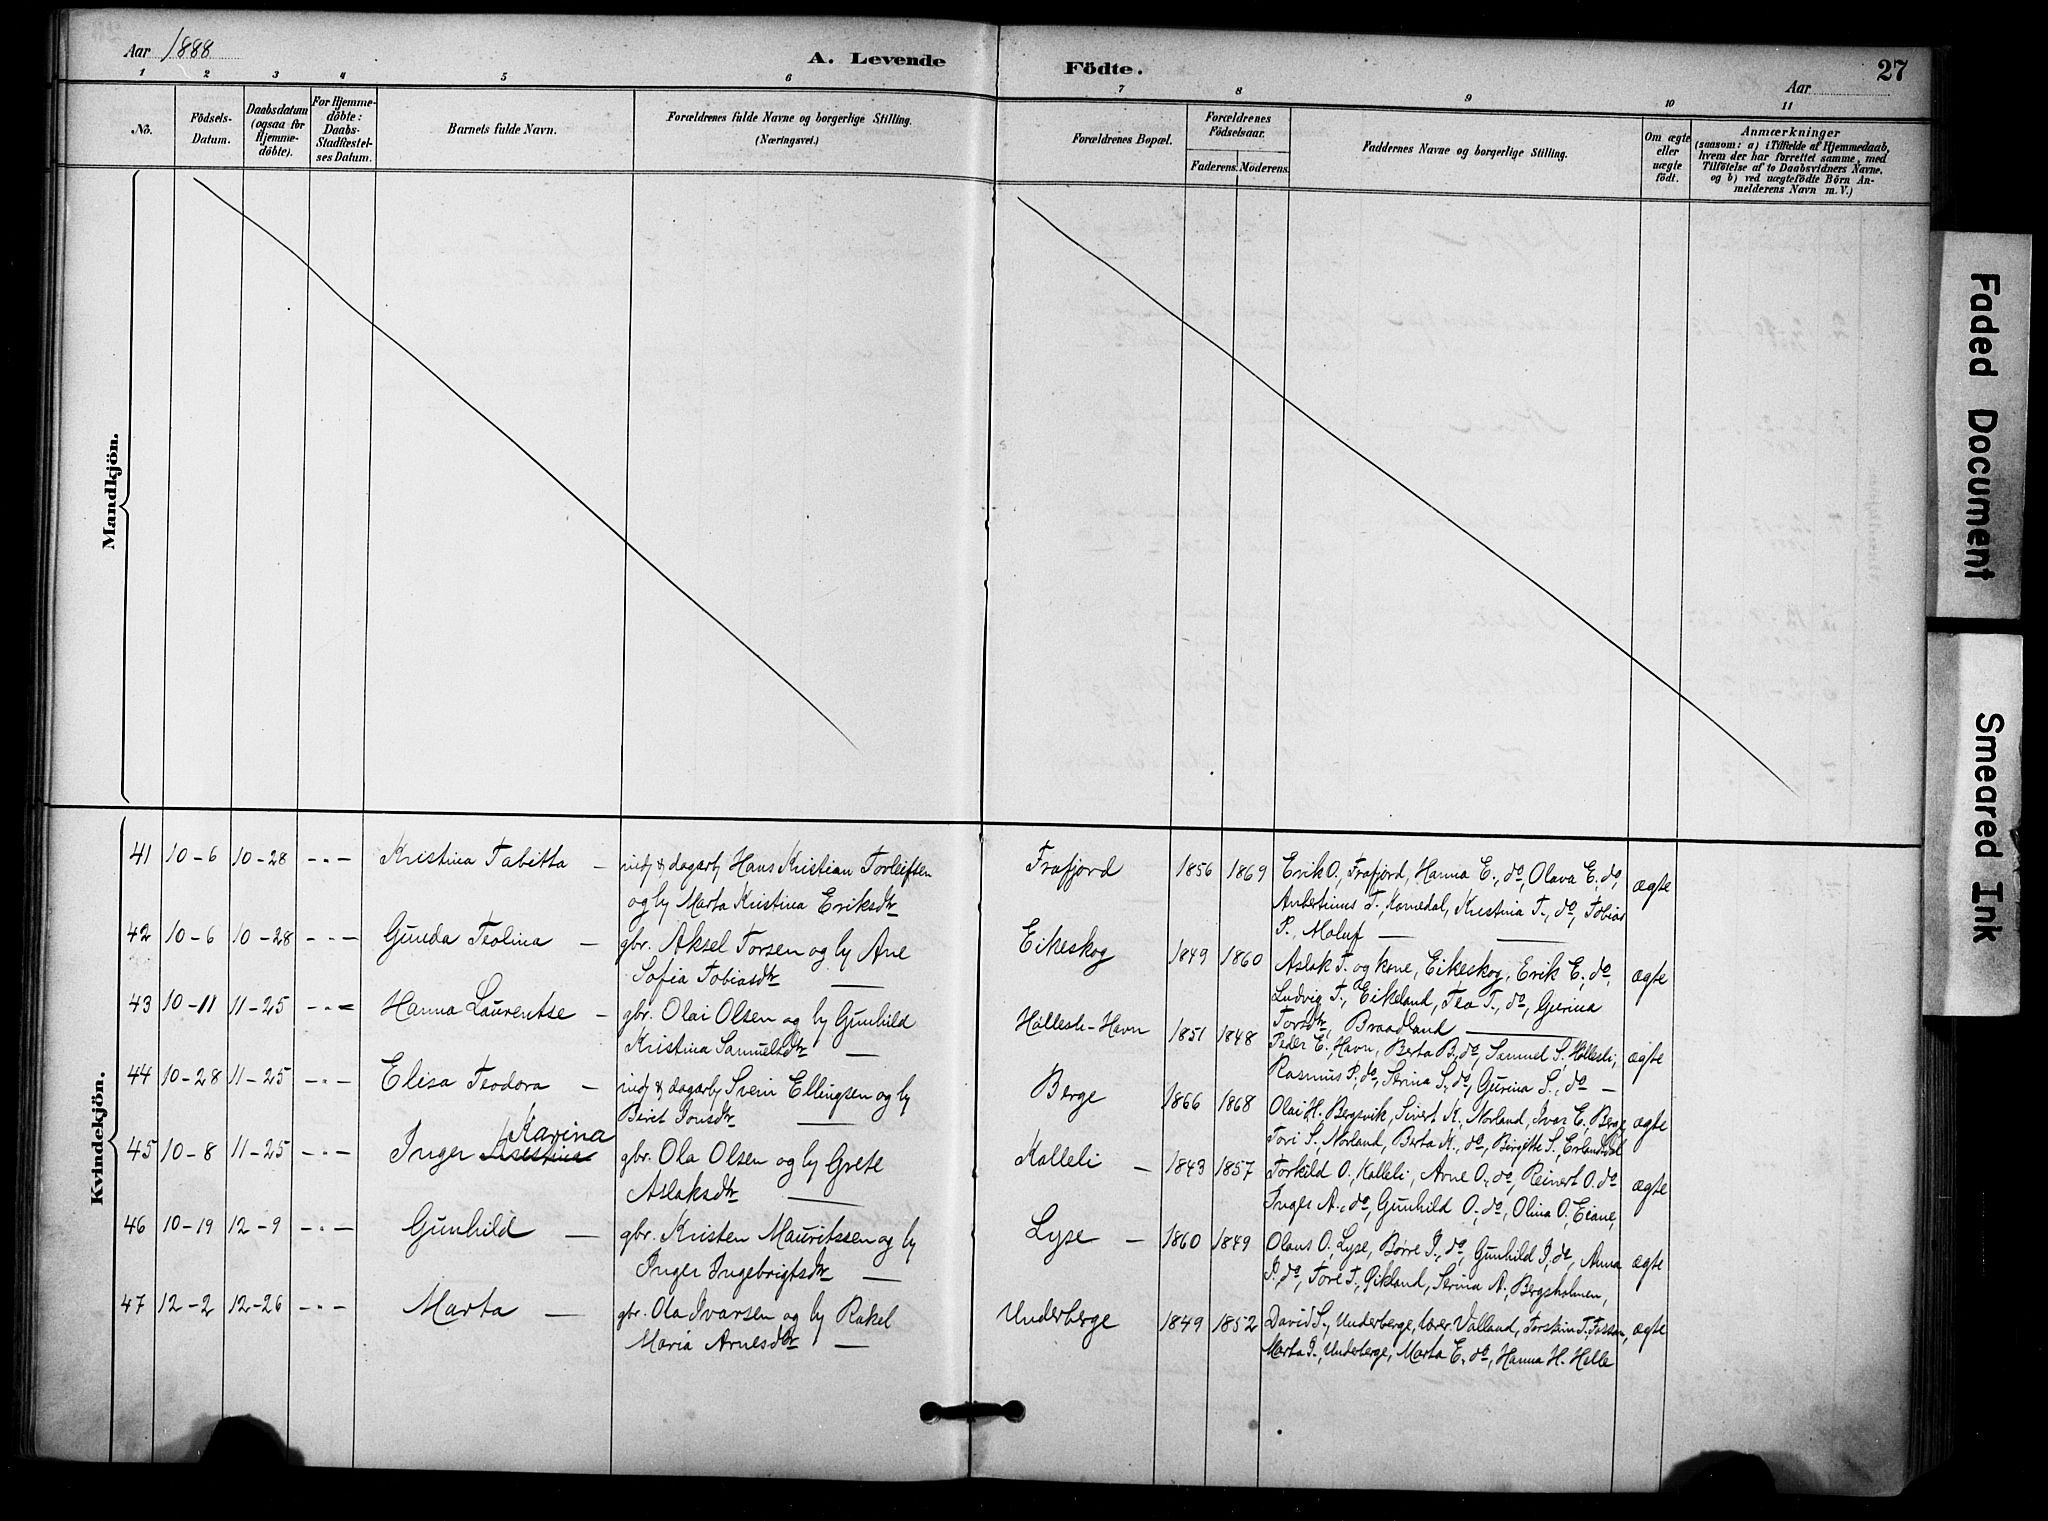 Aar 1888
A. Levende Födte.
Aar
27
1 2 3 4 5 6 7 8 9 10 11
No.
Födsels-Datum.
Daabsdatum (ogsaa for Hjemme-döbte).
For Hjemme-döbte: Daabs-Stadfæstel-ses Datum.
Barnets fulde Navn.
Forældrenes fulde Navne og borgerlige Stilling.
(Næringsvei.)
Forældrenes Bopæl.
Forældrenes Födselsaar.
Faderens. Moderens.
Faddernes Navne og borgerlige Stilling.
Om ægte eller uægte födt.
Anmærkninger
(saasom: a) i Tilfælde af Hjemmedaab,
hvem der har forrettet samme, med
Tilföielse af to Daabsvidners Navne,
og b) ved uægtefödte Börn An-
melderens Navn m. V.)
Mandkjön.
Kvindekjön.
41 10-6 10-28 - " - Kristina Tabitta — indj & dagarb Hans Kristian Torleifsen
og hj Marta Kristina Eriksdtr
Frafjord 1856 1869 Erik O., Frafjord, Hanna E., do, Olava E., do,
Anbertinus T., Komedal, Kristina T., do, Tobias
P., Maluf — ægte
42 10-6 10-28 - " - Gunda Teolina — gbr. Aksel Torsen og hj Ane
Sofia Tobiasdtr —
Eikeskog 1849 1860 Aslak T. og kone, Eikeskog, Erik E., do,
Ludvig T., Eikeland, Tea T., do, Gurina
Torsdtr, Braadland — ægte
43 10-11 11-25 - " - Hanna Laurentse — gbr. Olai Olsen og hj Gunhild
Kristina Samuelsdtr —
Hallesli-Havn 1851 1848 Peder E., Havn, Berta B., do, Samuel S., Hallesli,
Rasmus P., do, Serina S., do, Gurina S., do — ægte
44 10-28 11-25 - " - Elisa Teodora — indj & dagarb Svein Ellingsen og hj
Berit Jonsdtr —
Berge 1866 1868 Olai H. Bergsvik, Sivert K., Norland, Ivar E., Berge
Tori S., Norland, Berta K., do, Birgitte S., Erlandsdal ægte
45 10-8 11-25 - " - Inger Karina gbr. Ola Olsen og hj Grete
Aslaksdtr —
Kalleli — 1843 1857 Torkild O., Kalleli, Arne O., do, Reinert O. do
Inger A., do, Gunhild O., do, Olina O., Eiane, ægte
46 10-19 12-9 - " - Gunhild — gbr. Kristen Mauritssen og hj
Inger Ingebrigtsdtr —
Lyse — 1860 1849 Olaus O., Lyse, Børre I., do, Gunhild I., do, Anna
P., do, Tore T., Gikland, Serina A., Bergsholmen, ægte
47 12-2 12-26 - " - Marta — gbr. Ola Ivarsen og hj Rakel
Maria Arnesdtr —
Underberge 1849 1852 David S., Underberge, lærer Valland, Torstein T. Fossan,
Marta I., Underberge, Marta E., do, Hanna H. Helle ægte
Faded Document
Smeared Ink